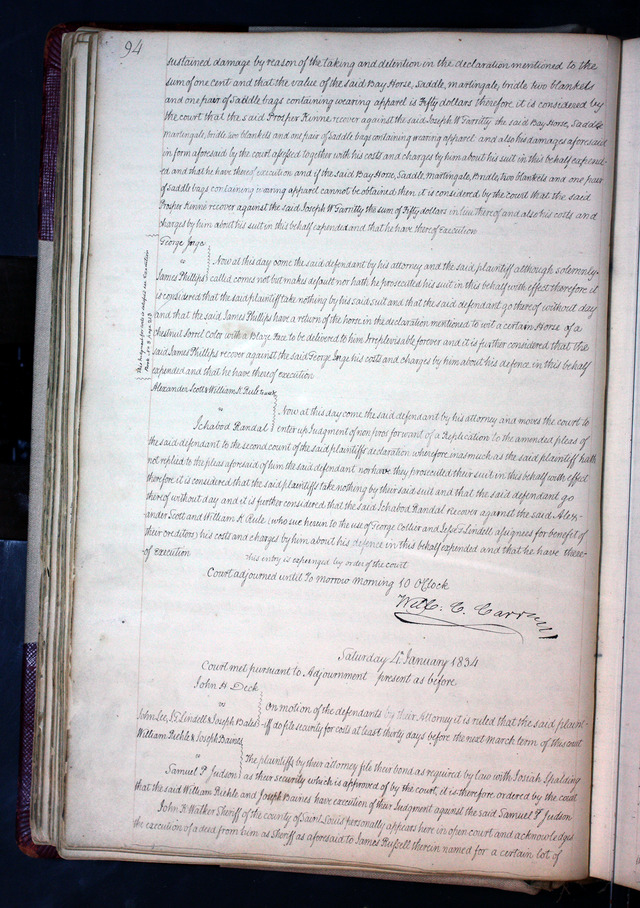 94
sustained damage by reason of the taking and detention in the declaration mentioned to the
sum of one cent and that the value of the said Bay Horse, Saddle, martingale, bridle two blankets
and one pair of Saddle bags containing wearing apparel is Fifty dollars therefore it is considered by
the court that the said Prosper Kinne recover against the said Joseph W Garritty the said Bay Horse, Saddle
martingale, bridle, two blankets and one pair of Saddle bags containing wearing apparel and also his damages aforesaid
in form aforesaid by the court assessed together with his costs and charges by him about his suit in this behalf expend-
ed and that he have thereof execution and if the said Bay Horse, Saddle, Martingale, Bridle, two blankets and one pair
of saddle bags containing wearing apparel cannot be obtained then it is considered by the court that the said
Prosper Kinne recover against the said Joseph W Garritty the sum of Fifty dollars in lieu thereof and also his costs and
charges by him about his suit in this behalf expended and that he have thereof execution
George Jorge
vs
Now at this day come the said defendant by his attorney and the said plaintiff although solemnly
James Phillips called comes not but makes default nor hath he prosecuted his suit in this behalf with effect therefore it
is considered that the said plaintiff take nothing by his said suit and that the said defendant go thereof without day
and that the said James Phillips have a return of the horse in the declaration mentioned to wit a certain Horse of a
chestnut sorrel color with a blaze face to be delivered to him irreplevisable forever and it is further considered that the
said James Phillips recover against the said George Jorge his costs and charges by him about his defence in this behalf
expended and that he have thereof execution
Alexander Scott & William K Rule
vs
Now at this day come the said defendant by his attorney and moves the court to
Ichabod Randal enter up Judgment of non pros for want of a Replication to the amended pleas of
the said defendant to the second count of the said plaintiffs declaration wherefore inasmuch as the said plaintiff hath
not replied to the pleas aforesaid of him the said defendant nor have they prosecuted their suit in this behalf with effect
therefore it is considered that the said plaintiffs take nothing by their said suit and that the said defendant go
thereof without day and it is further considered that the said Ichabod Randal recover against the said Alex-
ander Scott and William K Rule (who sue herein to the use of George Collier and Jesse G Lindell assignees for benefit of
their creditors) his costs and charges by him about his defence in this behalf expended and that he have there-
of execution this entry is expunged by order of the court
Court adjourned until to morrow morning 10 O'Clock
Will: C. Carr
Saturday 4th January 1834
Court met pursuant to Adjournment present as before
John H Deck
vs
On motion of the defendants by their Attorney it is ruled that the said plaint-
John Lee, J G Lindell & Joseph Bates iff do file security for costs at least thirty days before the next march term of this court
William Biehle & Joseph Baines
vs
The plaintiffs by their attorney file their bond as required by law with Josiah Spalding
Samuel P Judson as their security which is approved of by the court, it is therefore ordered by the court
that the said William Biehle and Joseph Baines have execution of their Judgment against the said Samuel P Judson
John K Walker Sheriff of the county of Saint Louis personally appears here in open court and acknowledges
the execution of a deed from him as Sheriff as aforesaid to James Russell therein named for a certain lot of